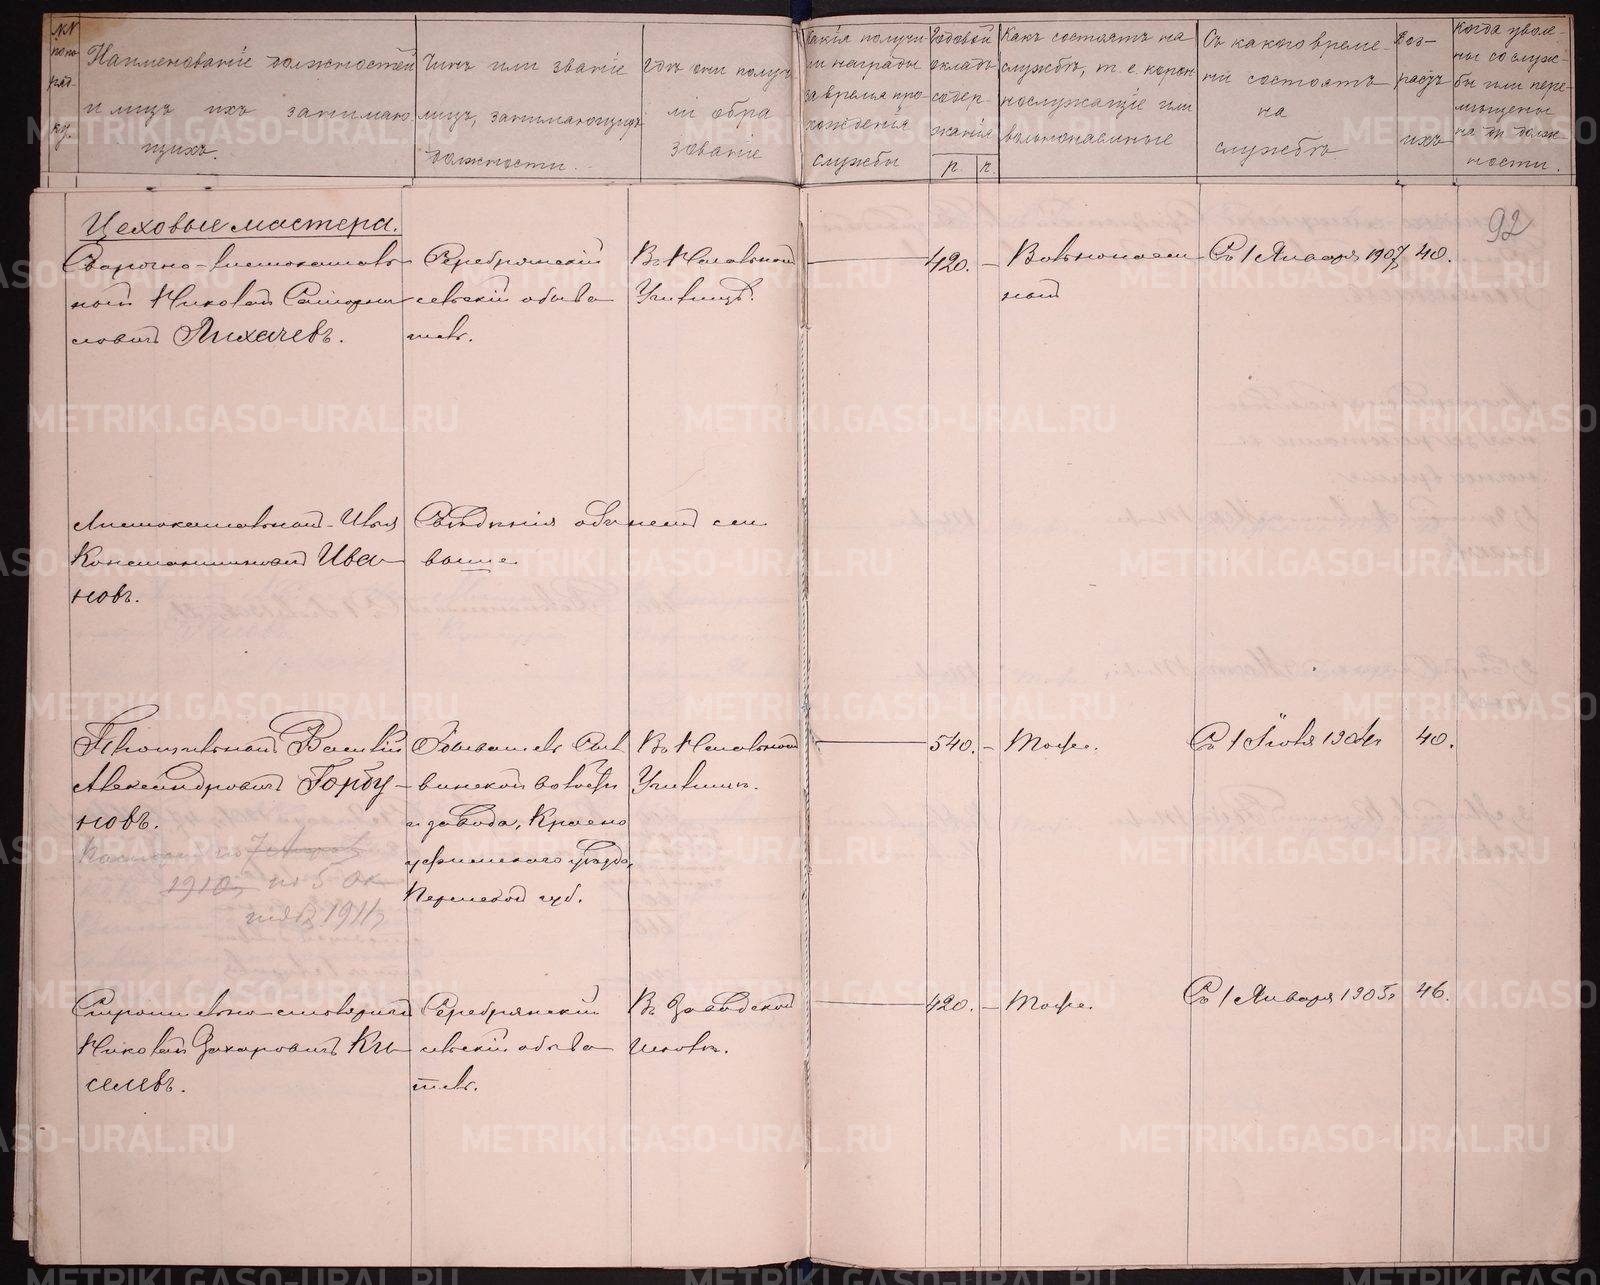 №№ по по ряд- ку.
Наименованіе должностей
и лицъ ихъ занимаю
щихъ.
Чинъ или званіе
лицъ, занимающихъ
должности.
Гдѣ они получ
ли обра
зованіе
Какія получи-
ли награды
за время про-
хожденія
службы
Годовой
окладъ
содер-
жанія
р. к.
Какъ состоятъ на
службѣ, т. е. корон
нослужащіе или
вольнонаемные
Съ какого време-
ни состоятъ
на
службѣ
Воз-
растъ
ихъ
Когда уволе-
ны со служ-
бы или пере-
мѣщены
на др. долж-
ности.
92
Цеховые мастера.
Сварочно-листокаталь
ный Николай
Лихачевъ.
Серебрянскій
сельскій обыва
тель.
Въ Начальномъ
Училищѣ.
420. –
Вольнонаем
ный
Съ 1 Января 1907
40.
Листокатальный – Илья
Константиновичъ Ива-
новъ.
Свѣдѣнія объ немъ см
выше
Василій
Александровичъ Горбу-
новъ.
1910, по 5 Ок
тябр 1911 г
Обыватель Сыл
винской волости
и завода, Красно
уфимскаго уѣзда,
Пермской губ.
Въ Начальномъ
Училищѣ.
540. –
Тоже.
Съ 1 Іюля
40.
Строительно-столярный
Николай Захаровичъ Ки
селевъ.
Серебрянскій
сельскій обыва
тель.
Въ Заводской
школѣ.
420. –
Тоже.
Съ 1 Января 1905 г
46.
METRIKI.GASO-URAL.RU